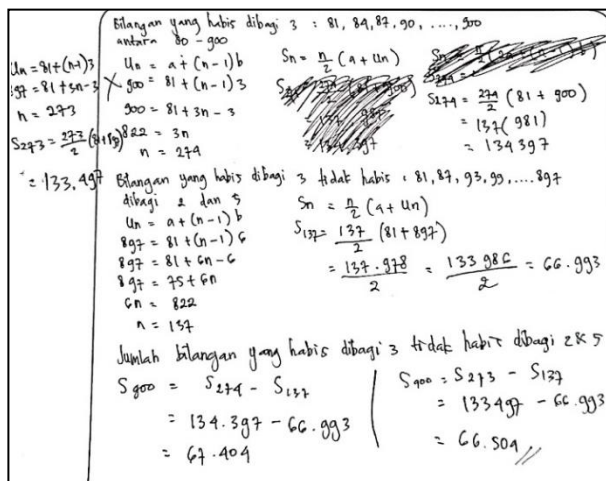 Bilangan yang habis dibagi 3 : 81, 84, 87, 90, ...., 900
antara 80 - 900
Un = 81+(n-1)3
897 = 81+3n-3
n = 273
S273 = 273/2 (81+897)
= 133.497
Un = a+(n-1)b
900 = 81+(n-1)3
900 = 81+3n-3
822 = 3n
n = 274
Sn = n/2 (a+Un)
S274 = 274/2 (81+900)
= 137(981)
= 134397
Bilangan yang habis dibagi 3 tidak habis : 81, 87, 93, 99, .... 897
dibagi 2 dan 5
Un = a+(n-1)b
897 = 81+(n-1)6
897 = 81+6n-6
897 = 75+6n
6n = 822
n = 137
Sn = n/2 (a+Un)
S137 = 137/2 (81+897)
= 137.978/2 = 133986/2 = 66.993
Jumlah bilangan yang habis dibagi 3 tidak habis dibagi 2&5
S900 = S274 - S137
= 134.397 - 66.993
= 67.404
S900 = S273 - S137
= 133497 - 66.993
= 66.504